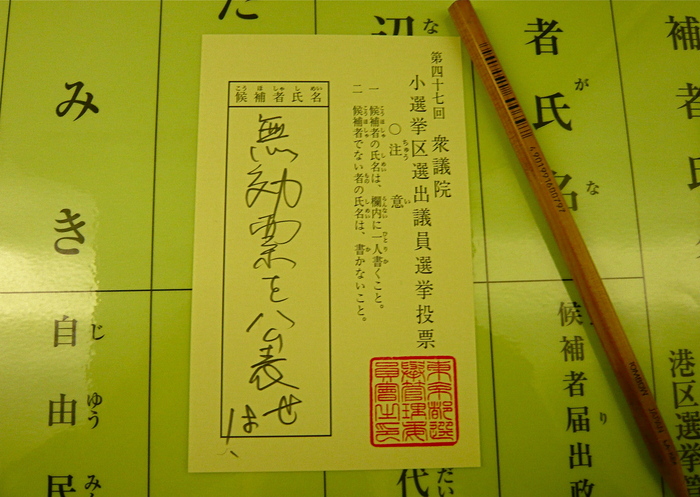 補者氏
港区選挙
者氏名
がな
候補者届出政
り
4901991600797
辺
な
代
だい
第四十七回 衆議院
小選挙区選出議員選挙投票
○注意
ちゅうい
一 候補者の氏名は、欄内に一人書くこと。
二 候補者でない者の氏名は、書かないこと。
東京都選
擧管理委
員會之印
候補者氏名
こうほしゃしめい
無効票を公表せ
た
みき
自由民
じゆうみん